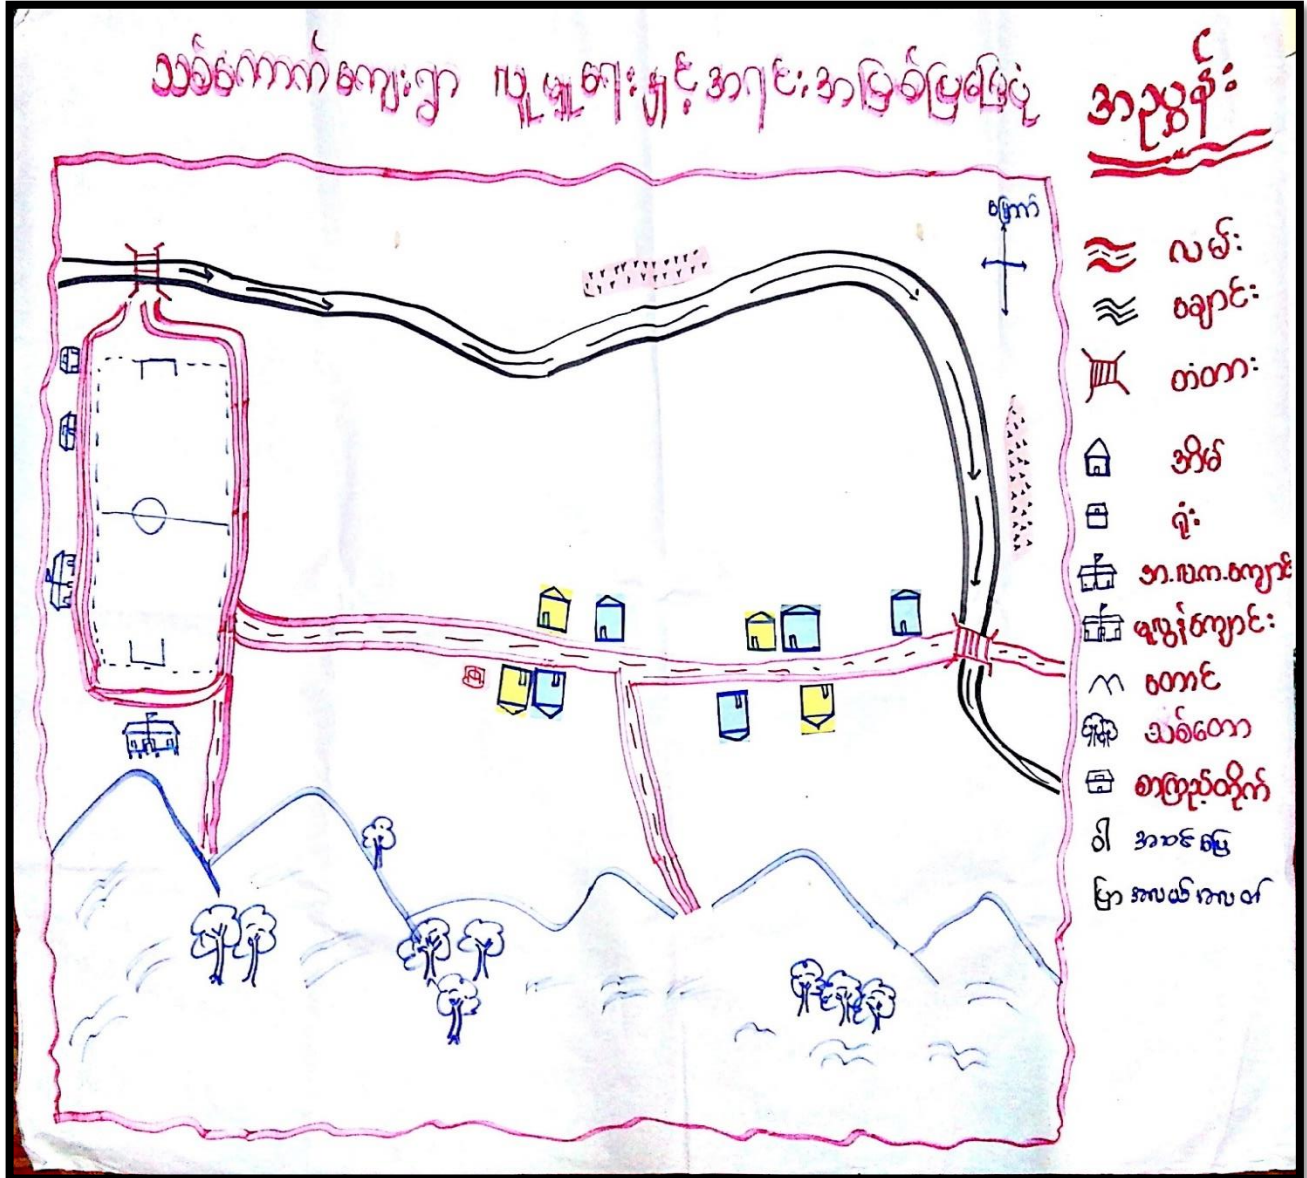 သစ်ကောက်ကျေးရွာ လူမှုရေးနှင့်အရင်းအမြစ်ပြမြေပုံ
အညွှန်း
မြောက်
လမ်း
ချောင်း
တံတား
အိမ်
ရုံး
အ.လ.က.ကျောင်း
မူလွန်ကျောင်း
တောင်
သစ်တော
စာကြည့်တိုက်
ဝါ အဆင်ပြေ
ပြာ အလယ်အလတ်